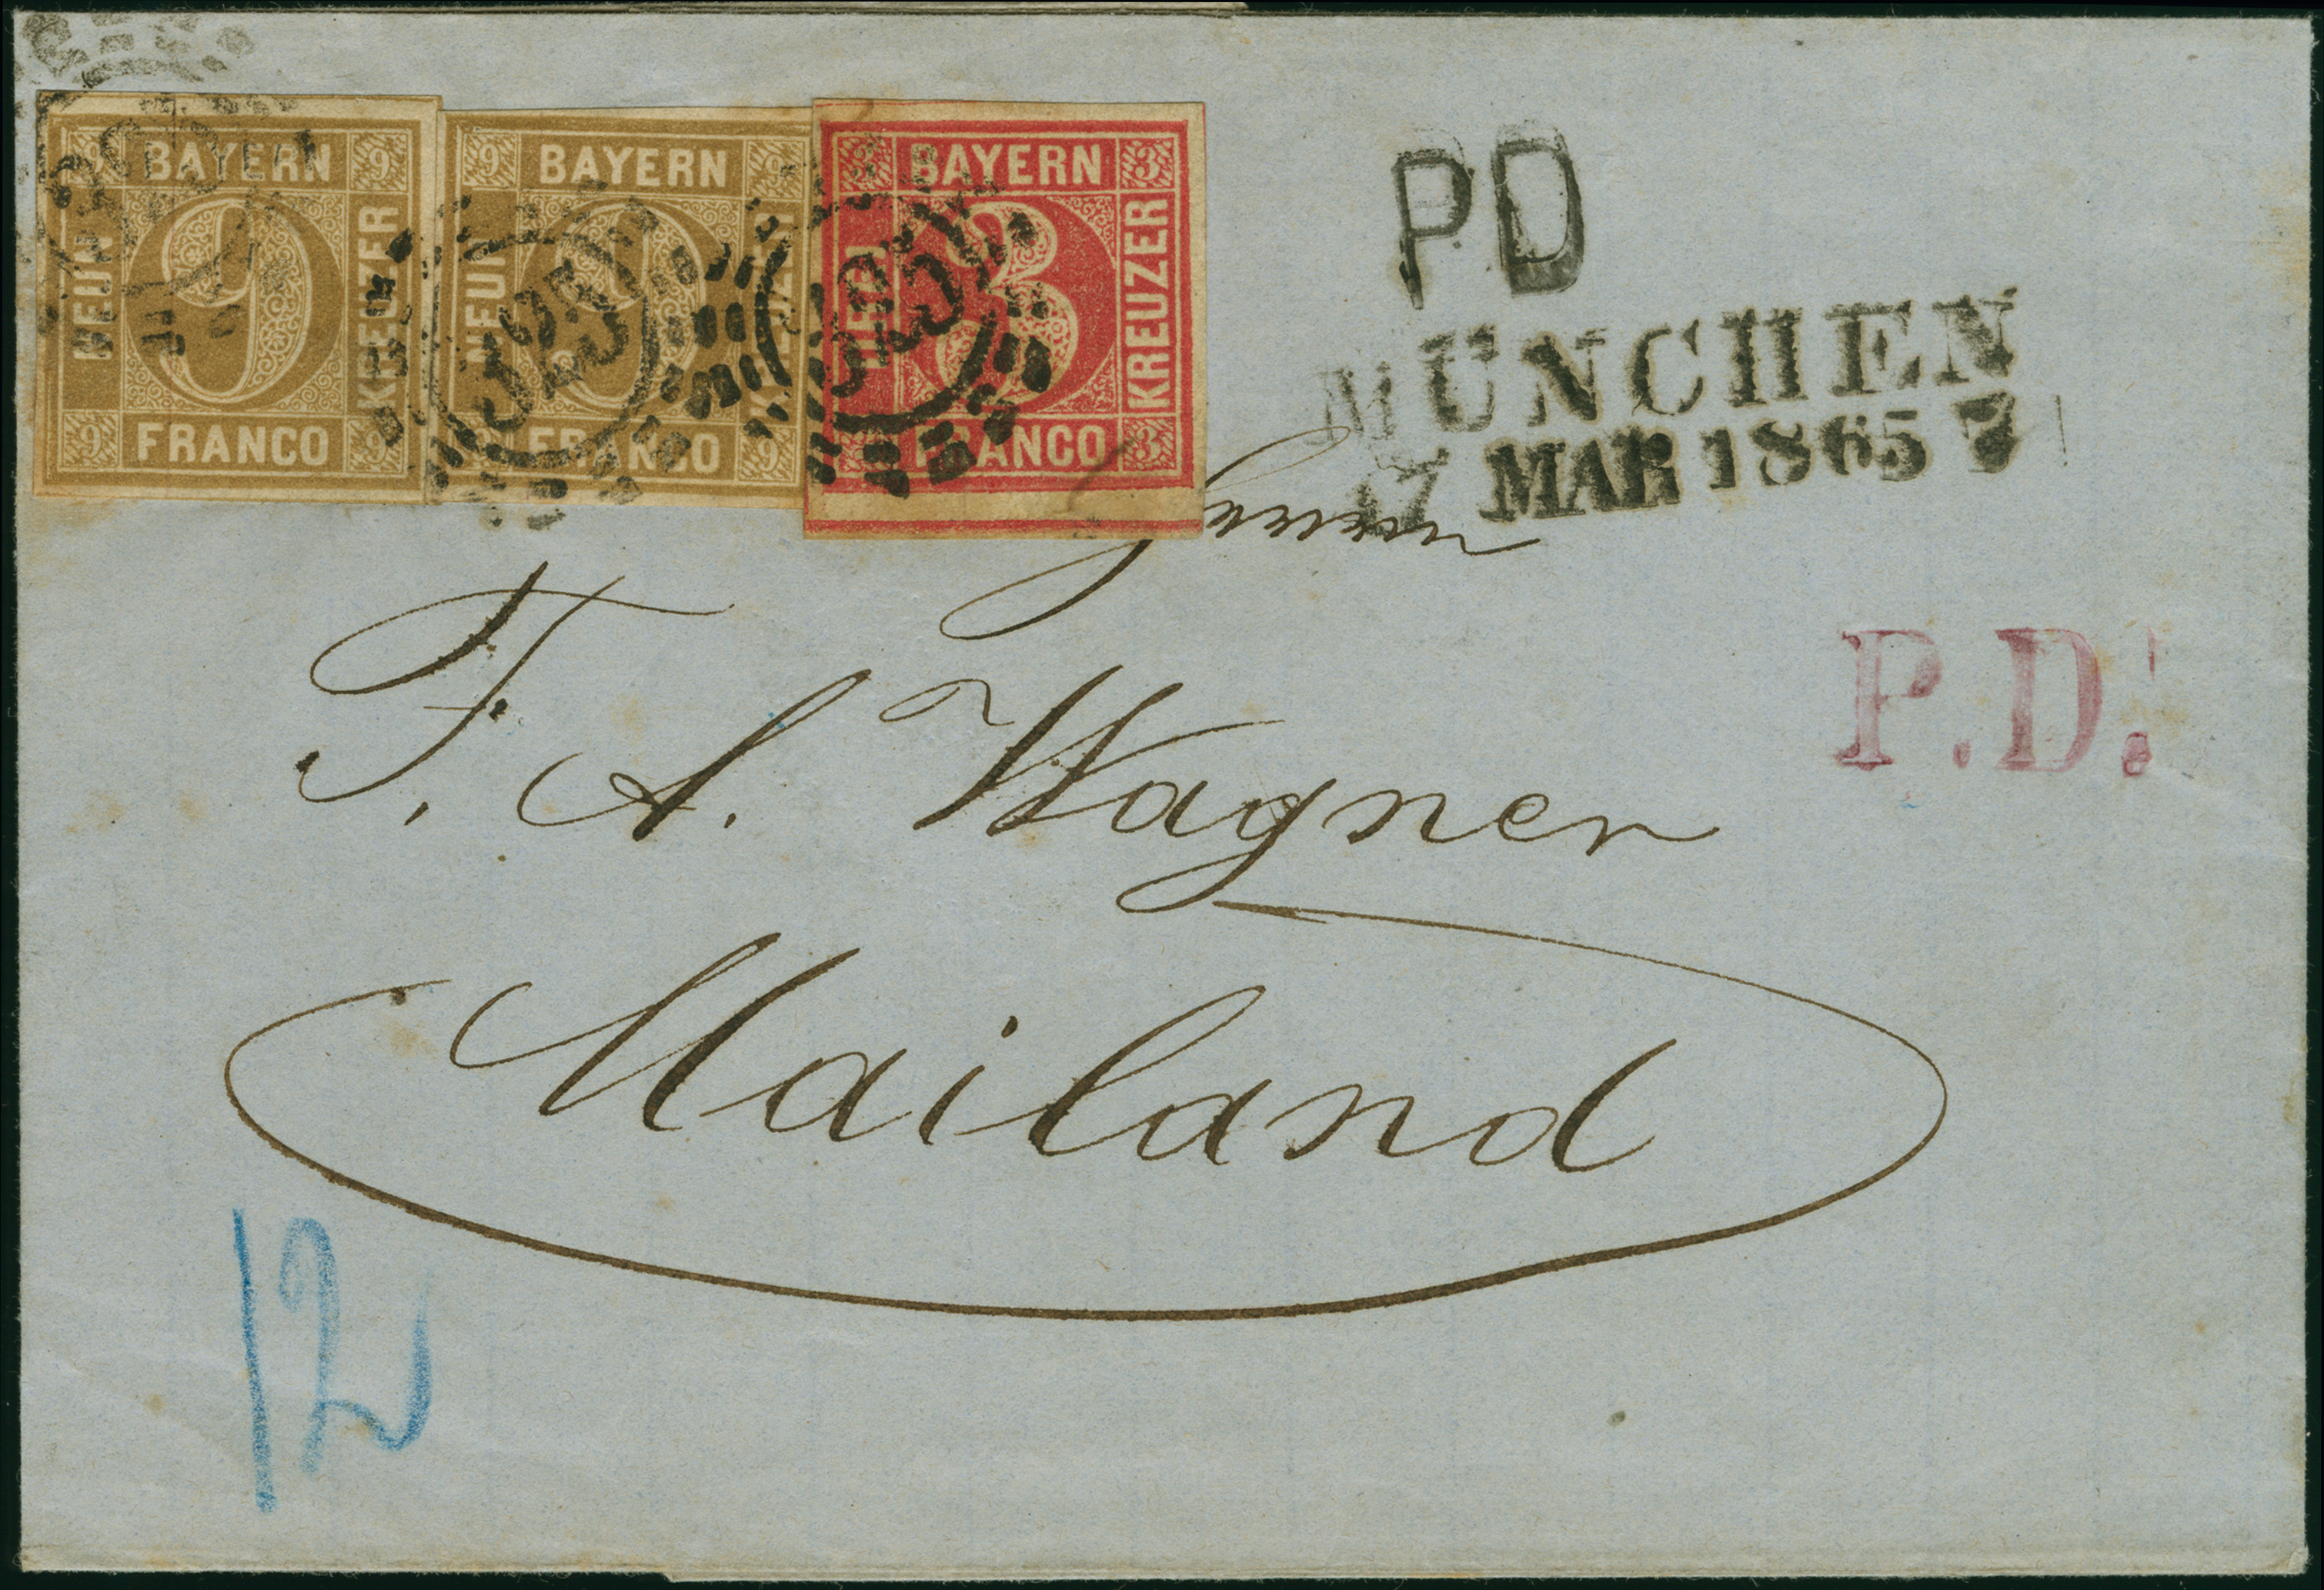 9 BAYERN 9
NEUN
9
KREUZER
9 FRANCO 9
9 BAYERN 9
NEUN
9
KREUZER
FRANCO 9
325
3 BAYERN 3
DREI
3
KREUZER
FRANCO 3
325
PD
MÜNCHEN
17 MAR 1865 7
Herrn
P.D.
F. A. Wagner
Mailand
12